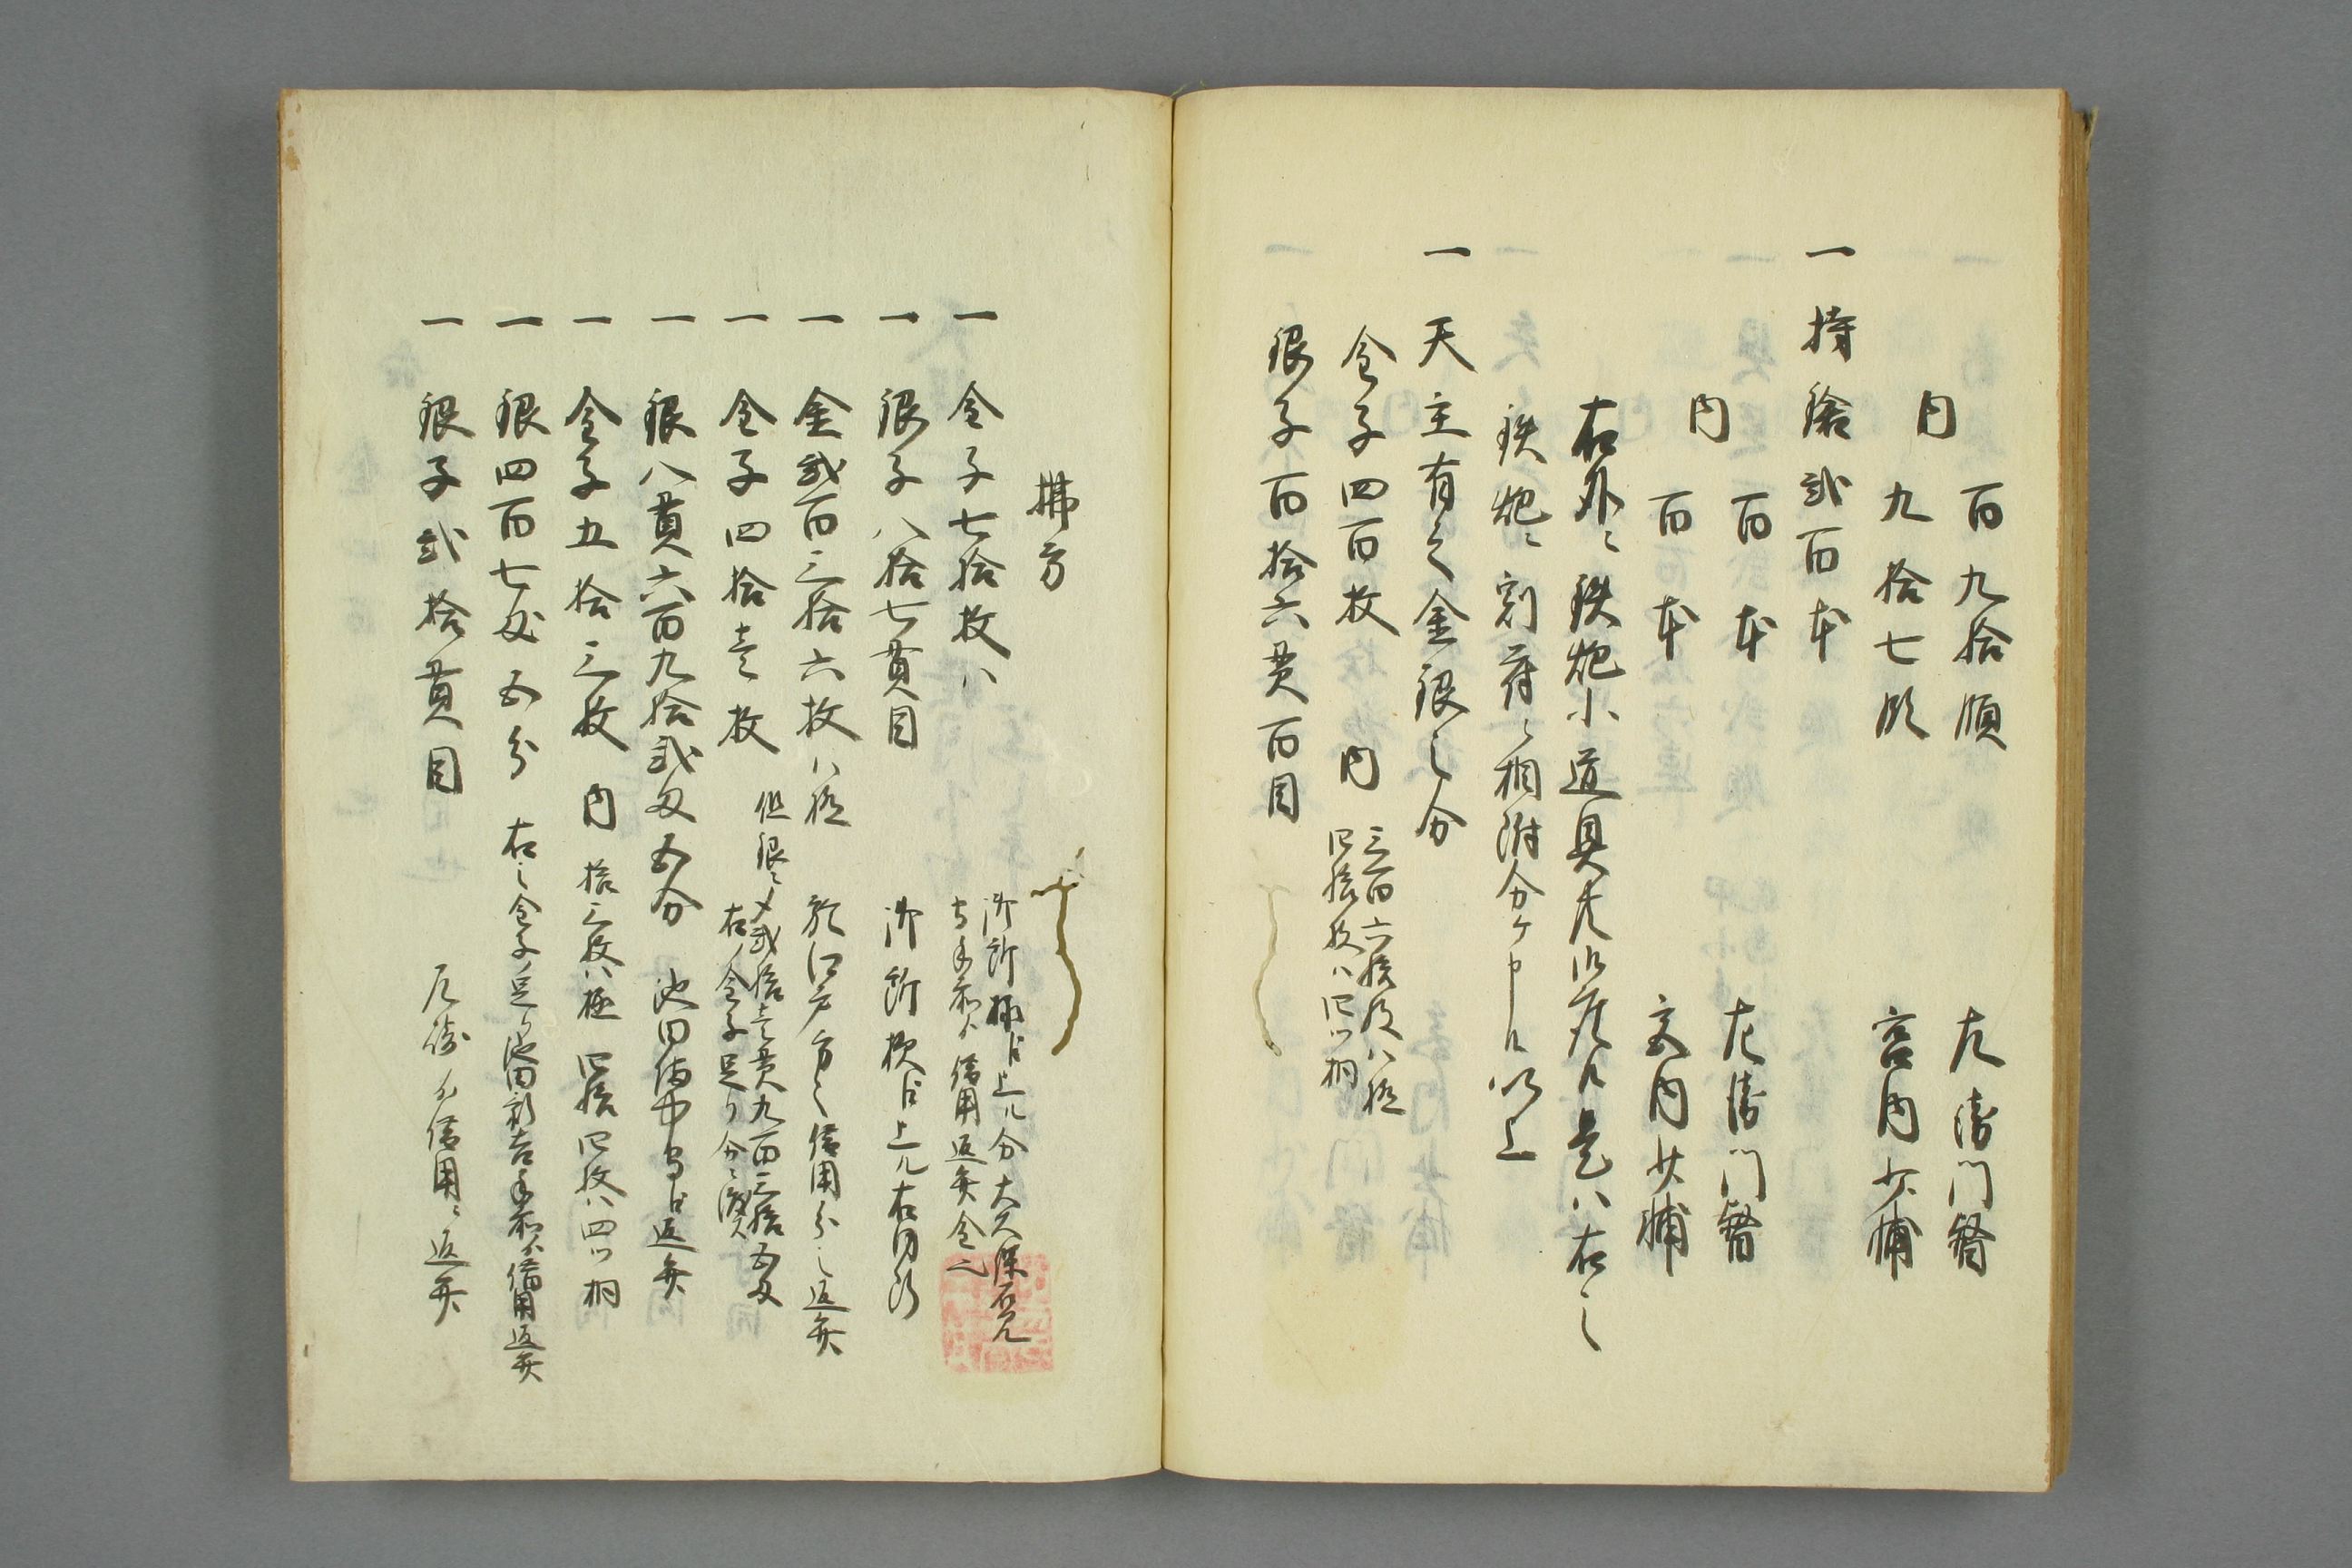 百九拾順 左衛門督
内
九拾七順 宮内少輔
一 持鑓弐百本
百本 左衛門督
内
百本 宮内少輔
右外ニ鉄炮小道具共御座候是ハ右之
鉄炮ニ割符ニ相附分ケ申候以上
一 天主有之金銀之分
金子四百枚 内 三百六拾枚ハ極
四拾枚ハ四ツ桐
銀子百拾六貫百目
拂方
一 金子七拾枚ハ 御所様ゟ上ル分大久保石見
手前ゟ借用返弁金也
一 銀子八拾七貫目 御所様ゟ上ル右同断
一 金弐百三拾六枚ハ極 於江戸方々借用分之返弁
一 金子四拾壱枚 但銀ニ〆弐拾壱貫九百三拾五匁
右ノ金子足り分ニ渡
一 銀八貫六百九拾弐匁五分 池田備中守ゟ返弁
一 金子五拾三枚 内 拾三枚ハ極 四拾四枚ハ四ツ桐
一 銀四百七匁五分 右之金子ノ足ニ池田新吉手前ゟ借用返弁
一 銀子弐拾貫目 尼崎ゟ借用ニ返弁